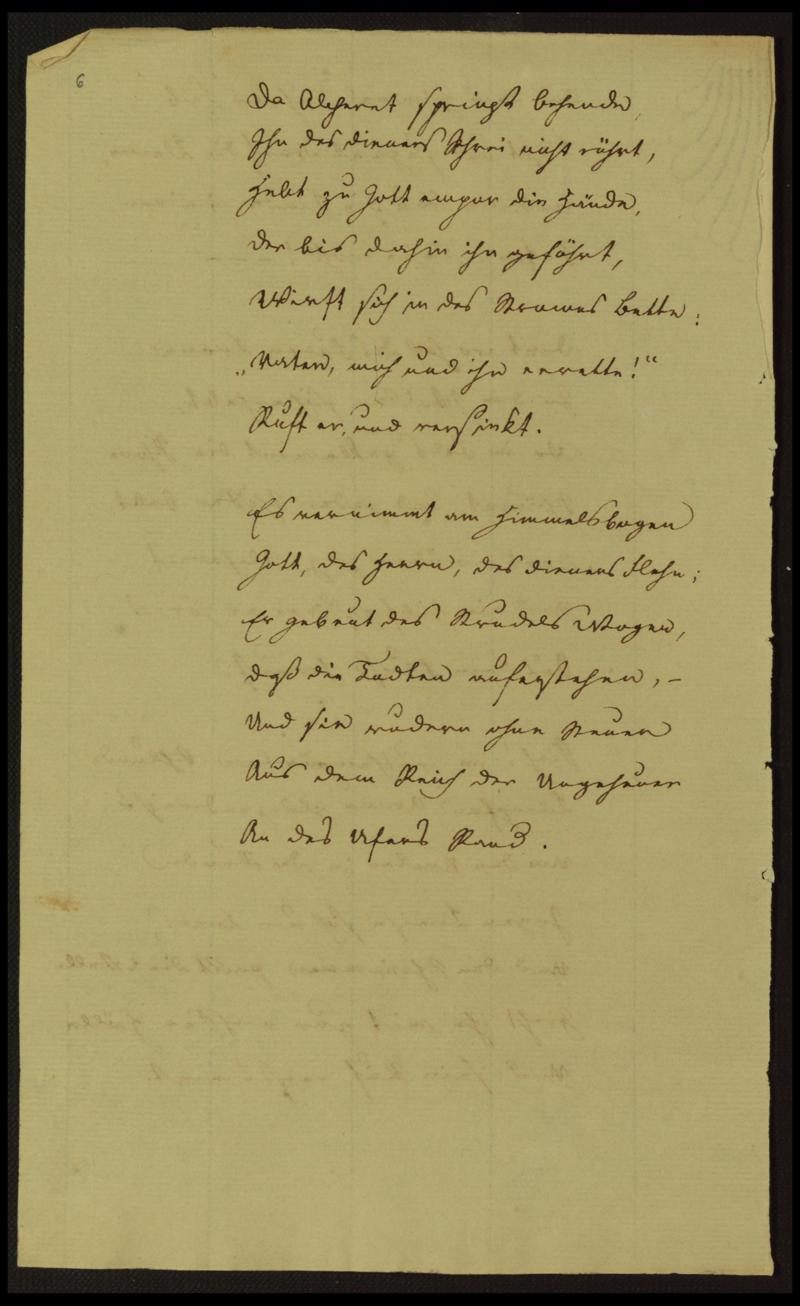 6
Da Alchert springt behende,
Ihn des Dieners Schrei nicht rührt,
Hebt zu Gott empor die Hände,
Der bis dahin ihn geführt,
Wirft sich in des Stromes Bette:
„Vater, mich und ihn errette!“
Ruft er, und versinkt.
Es vernimmt am Himmelsbogen
Gott, des Herrn, des Dieners Flehn;
Er gebeut des Strudels Wogen,
daß die Todten auferstehen, –
Und sie rudern ohne Steuer
Aus dem Reich der Ungeheuer
An des Ufers Rand.